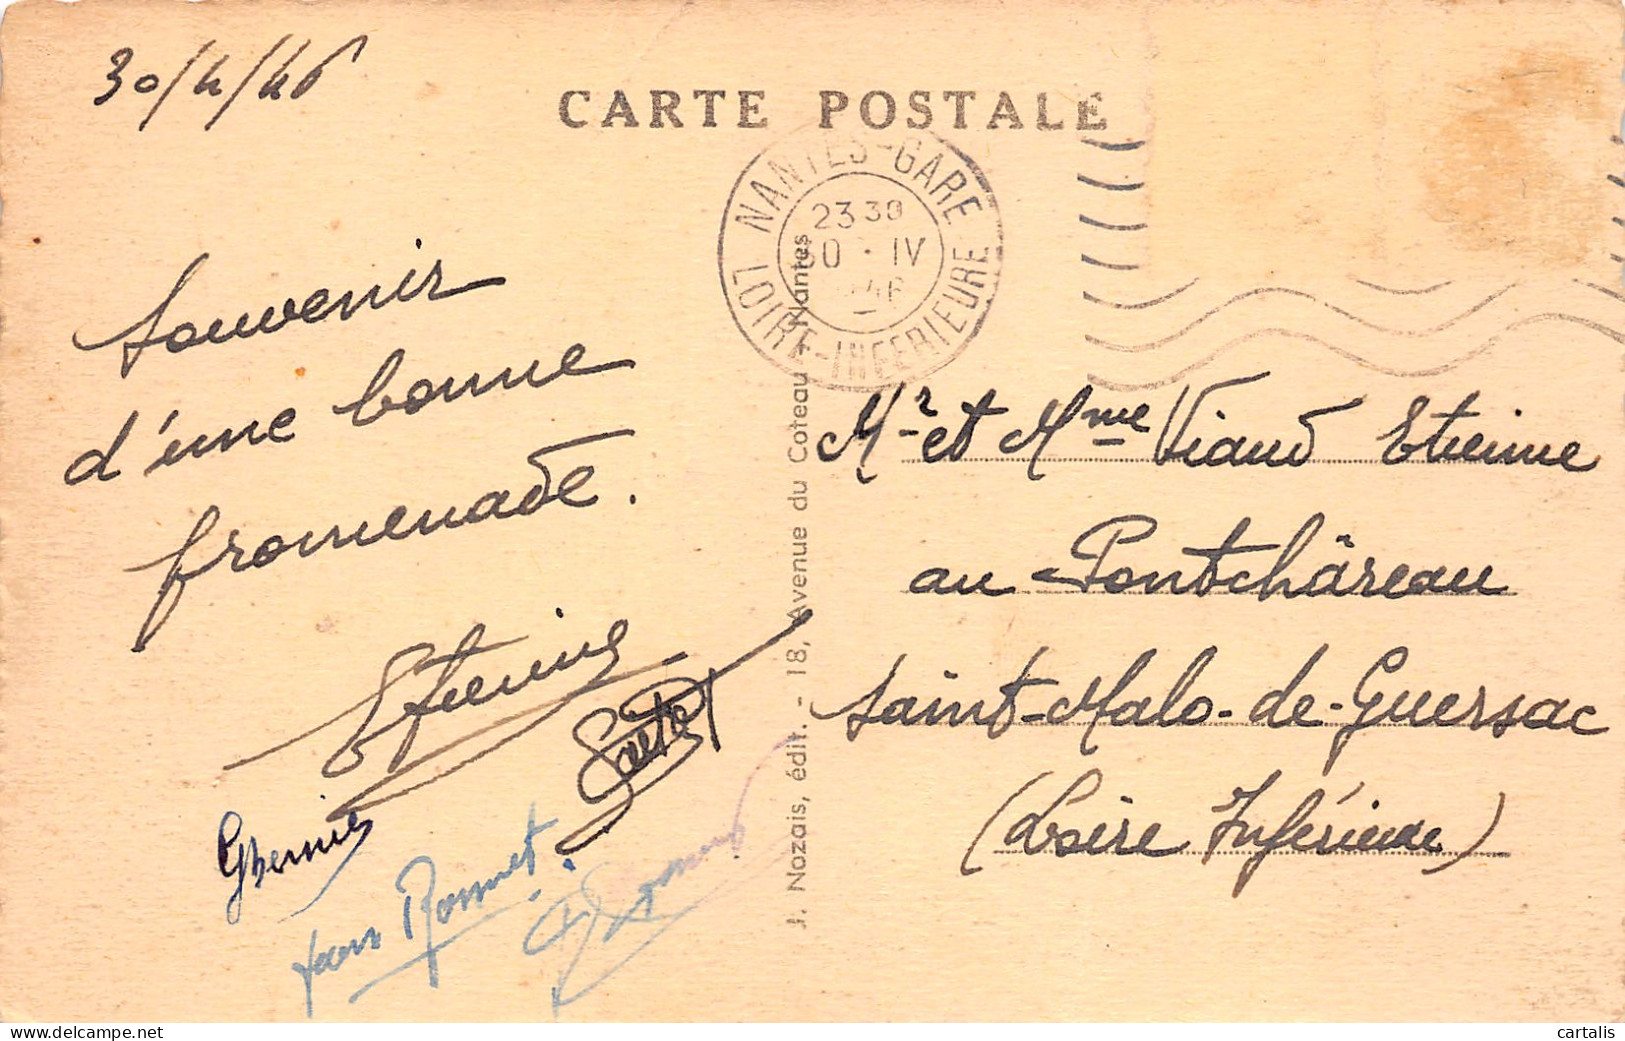 30/4/46
CARTE POSTALE
NANTES-GARE
23 30
30 - IV
LOIRE-INFERIEURE
Souvenir
d'une bonne
promenade.
Mr et Mme Viaud Etienne
au Pontchâreau
Saint-Malo-de-Guersac
(Loire Inférieure)
Etienne
J. Nozais, édit. - 18, Avenue du Coteau - Nantes
cartalis